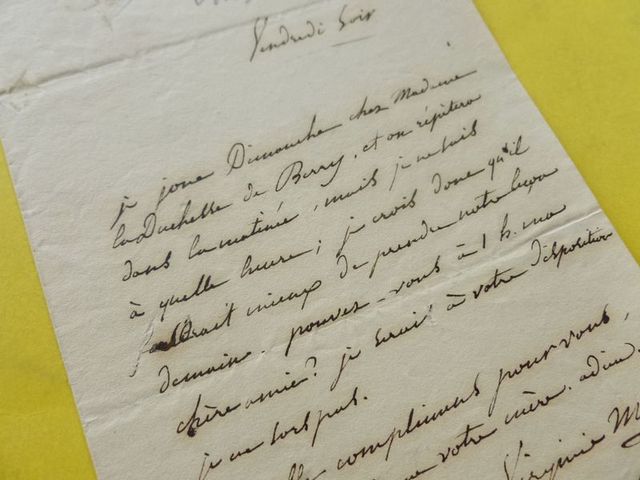 Vendredi Soir
je joue Dimanche chez Madame
la Duchesse de Berry, et on répétera
dans la matinée, mais je ne sais
à quelle heure; je crois donc qu'il
faudrait mieux de prendre notre leçon
demain. pouvez-vous à 1 h. ma
chère amie? je serai à votre disposition
je ne sors pas.
compliments pour vous,
votre mère. adieu.
Virginie M